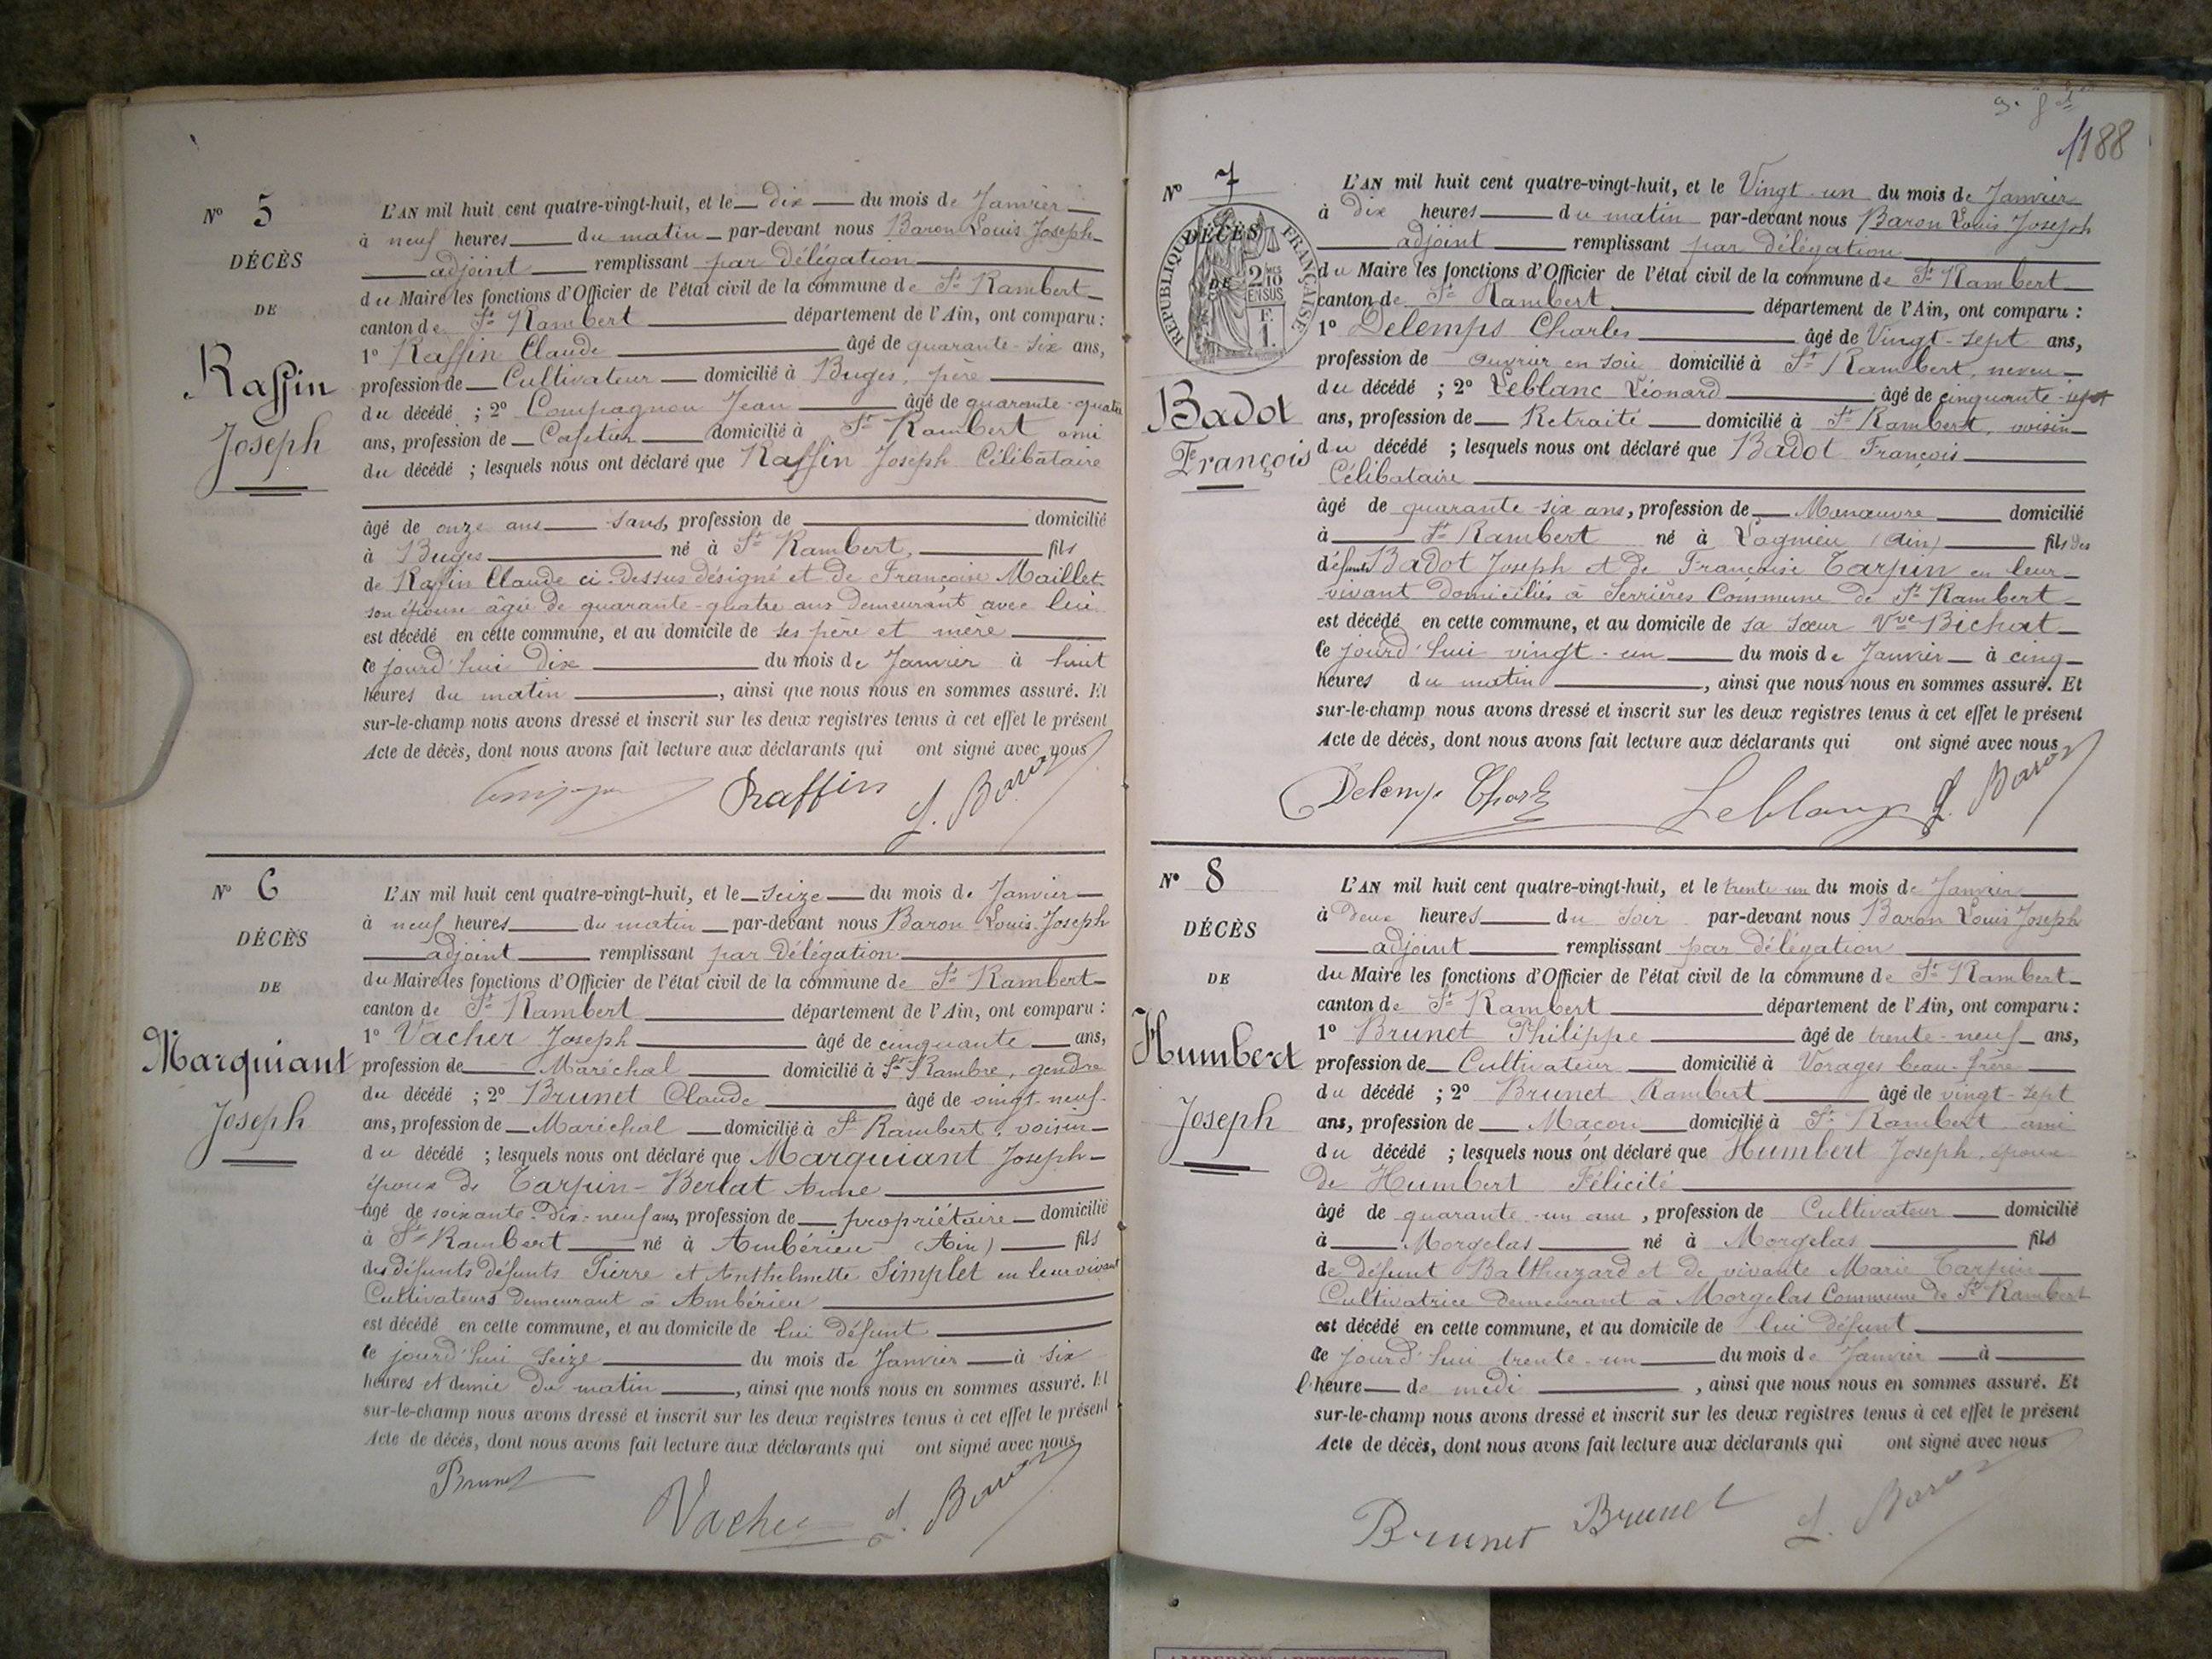 N° 5
DÉCÈS
DE
Raffin
Joseph
L'AN mil huit cent quatre-vingt-huit, et le dix du mois de Janvier
à neuf heures du matin par-devant nous Baron Louis Joseph
adjoint remplissant par délégation
du Maire les fonctions d'Officier de l'état civil de la commune de St Rambert
canton de St Rambert département de l'Ain, ont comparu :
1° Raffin Claude âgé de quarante-six ans,
profession de Cultivateur domicilié à Buges, père
du décédé ; 2° Compagnon Jean âgé de quarante-quatre
ans, profession de Cafetier domicilié à St Rambert ami
du décédé ; lesquels nous ont déclaré que Raffin Joseph Célibataire
âgé de onze ans sans, profession de domicilié
à Buges né à St Rambert, fils
de Raffin Claude ci-dessus désigné et de Françoise Maillet
son épouse âgée de quarante-quatre ans demeurant avec lui
est décédé en cette commune, et au domicile de ses père et mère
ce jourd'hui dix du mois de Janvier à huit
heures du matin, ainsi que nous nous en sommes assuré. Et
sur-le-champ nous avons dressé et inscrit sur les deux registres tenus à cet effet le présent
Acte de décès, dont nous avons fait lecture aux déclarants qui ont signé avec nous
Raffin L. Baron
N° 6
DÉCÈS
DE
Marquiant
Joseph
L'AN mil huit cent quatre-vingt-huit, et le seize du mois de Janvier
à neuf heures du matin par-devant nous Baron Louis Joseph
adjoint remplissant par délégation
du Maire les fonctions d'Officier de l'état civil de la commune de St Rambert
canton de St Rambert département de l'Ain, ont comparu :
1° Vacher Joseph âgé de cinquante ans,
profession de Maréchal domicilié à St Rambre, gendre
du décédé ; 2° Brunet Claude âgé de vingt-neuf
ans, profession de Maréchal domicilié à St Rambert, voisin
du décédé ; lesquels nous ont déclaré que Marquiant Joseph
époux de Tarpin-Berlat Anne
âgé de soixante-dix-neuf ans, profession de propriétaire domicilié
à St Rambert né à Ambérieu (Ain) fils
des défunts défunts Pierre et Anthelmette Simplet en leur vivant
Cultivateurs demeurant à Ambérieu
est décédé en cette commune, et au domicile de lui défunt
ce jourd'hui seize du mois de Janvier à six
heures et demie du matin, ainsi que nous nous en sommes assuré. Et
sur-le-champ nous avons dressé et inscrit sur les deux registres tenus à cet effet le présent
Acte de décès, dont nous avons fait lecture aux déclarants qui ont signé avec nous
Brunet
Vacher L. Baron
188
N° 7
DÉCÈS
DE
RÉPUBLIQUE FRANÇAISE
2 MES 10 EN SUS
F. 1.
Badot
François
L'AN mil huit cent quatre-vingt-huit, et le Vingt-un du mois de Janvier
à dix heures du matin par-devant nous Baron Louis Joseph
adjoint remplissant par délégation
du Maire les fonctions d'Officier de l'état civil de la commune de St Rambert
canton de St Rambert département de l'Ain, ont comparu :
1° Delemps Charles âgé de Vingt-sept ans,
profession de ouvrier en soie domicilié à St Rambert, neveu
du décédé ; 2° Leblanc Léonard âgé de cinquante-sept
ans, profession de Retraité domicilié à St Rambert, voisin
du décédé ; lesquels nous ont déclaré que Badot François
Célibataire
âgé de quarante-six ans, profession de Manœuvre domicilié
à St Rambert né à Lagnieu (Ain) fils des
défunts Badot Joseph et de Françoise Tarpin en leur
vivant domiciliés à Serrières Commune de St Rambert
est décédé en cette commune, et au domicile de sa sœur Vve Bichat
ce jourd'hui vingt-un du mois de Janvier à cinq
heures du matin, ainsi que nous nous en sommes assuré. Et
sur-le-champ nous avons dressé et inscrit sur les deux registres tenus à cet effet le présent
Acte de décès, dont nous avons fait lecture aux déclarants qui ont signé avec nous
Delemps Leblanc L. Baron
N° 8
DÉCÈS
DE
Humbert
Joseph
L'AN mil huit cent quatre-vingt-huit, et le trente-un du mois de Janvier
à deux heures du soir par-devant nous Baron Louis Joseph
adjoint remplissant par délégation
du Maire les fonctions d'Officier de l'état civil de la commune de St Rambert
canton de St Rambert département de l'Ain, ont comparu :
1° Brunet Philippe âgé de trente-neuf ans,
profession de Cultivateur domicilié à Vorages beau-frère
du décédé ; 2° Brunet Rambert âgé de vingt-sept
ans, profession de Maçon domicilié à St Rambert ami
du décédé ; lesquels nous ont déclaré que Humbert Joseph, époux
de Humbert Félicité
âgé de quarante-un ans, profession de Cultivateur domicilié
à Morgelas né à Morgelas fils
de défunt Balthazard et de vivante Marie Tarpin
Cultivatrice demeurant à Morgelas Commune de St Rambert
est décédé en cette commune, et au domicile de lui défunt
ce jourd'hui trente-un du mois de Janvier à
l'heure de midi, ainsi que nous nous en sommes assuré. Et
sur-le-champ nous avons dressé et inscrit sur les deux registres tenus à cet effet le présent
Acte de décès, dont nous avons fait lecture aux déclarants qui ont signé avec nous
Brunet Brunet L. Baron